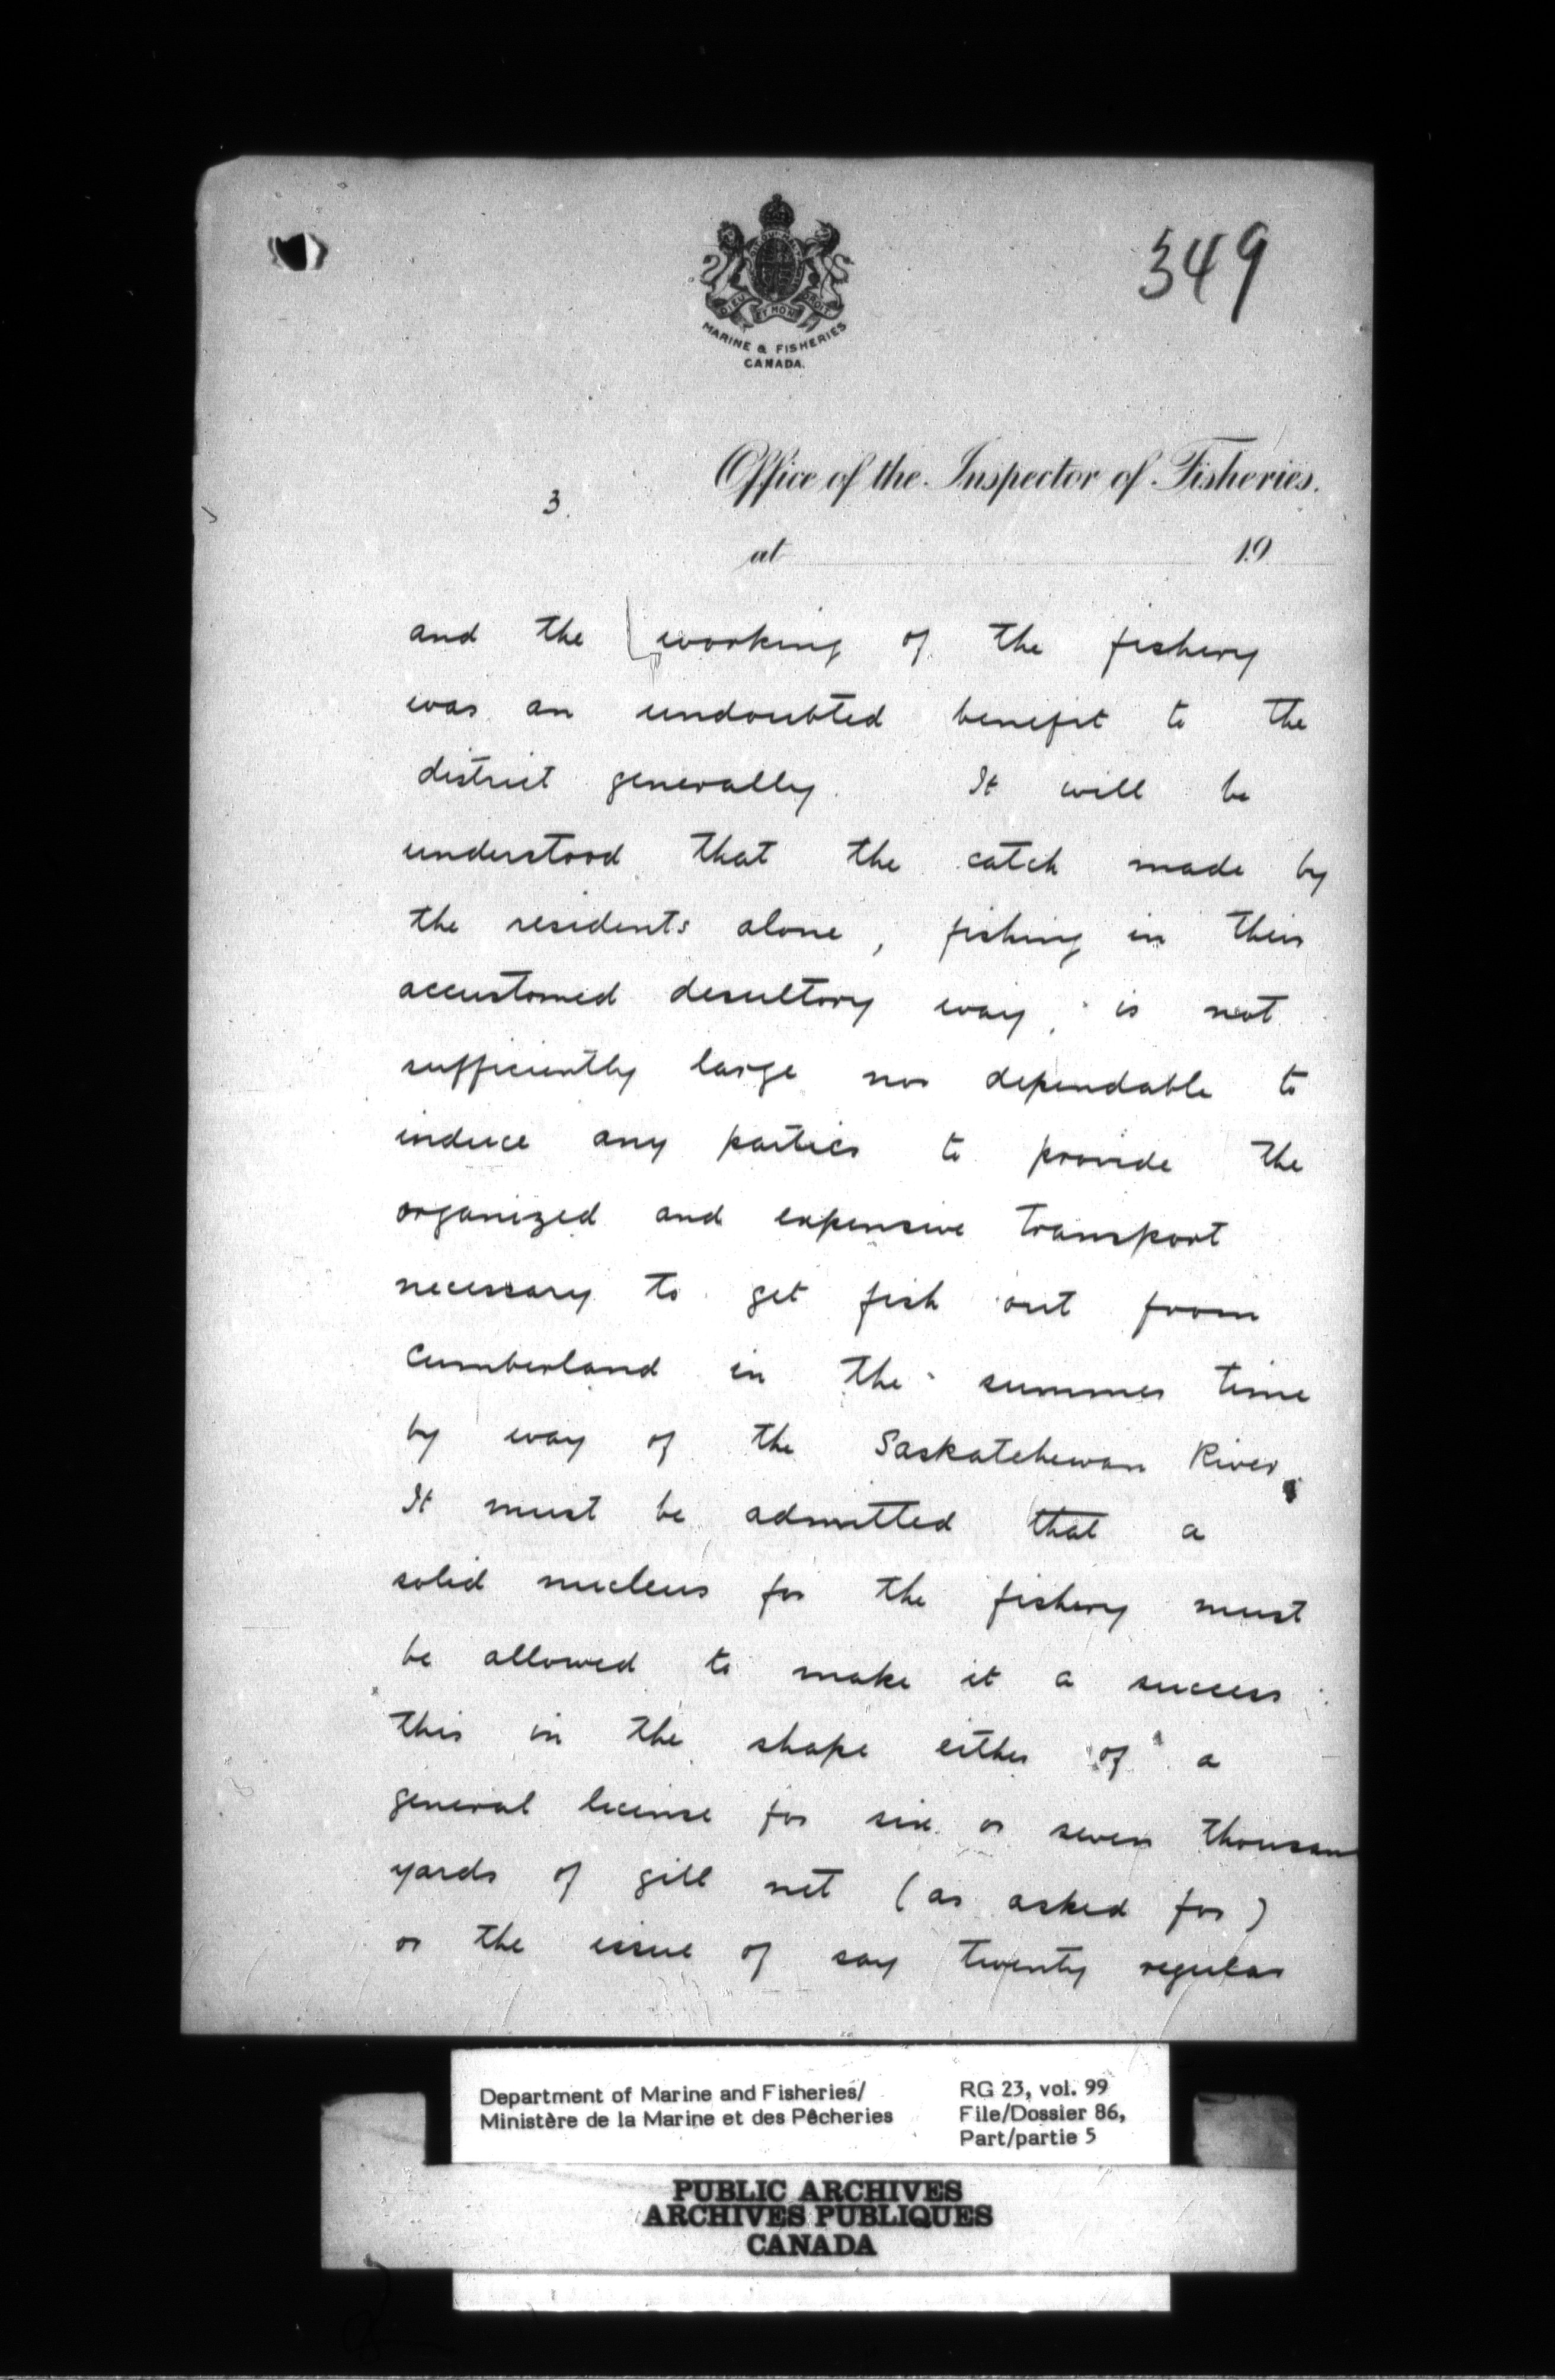 349
DIEU ET MON DROIT
MARINE & FISHERIES
CANADA.
Office of the Inspector of Fisheries.
3.
at 19
and the working of the fishery
was an undoubted benefit to the
district generally. It will be
understood that the catch made by
the residents alone, fishing in their
accustomed desultory way, is not
sufficiently large nor dependable to
induce any parties to provide the
organized and expensive transport
necessary to get fish out from
Cumberland in the summer time
by way of the Saskatchewan River.
It must be admitted that a
solid nucleus for the fishery must
be allowed to make it a success:
this in the shape either of a
general license for six or seven thousan
yards of gill net (as asked for)
or the issue of say twenty regular
Department of Marine and Fisheries/
Ministère de la Marine et des Pêcheries
RG 23, vol. 99
File/Dossier 86,
Part/partie 5
PUBLIC ARCHIVES
ARCHIVES PUBLIQUES
CANADA